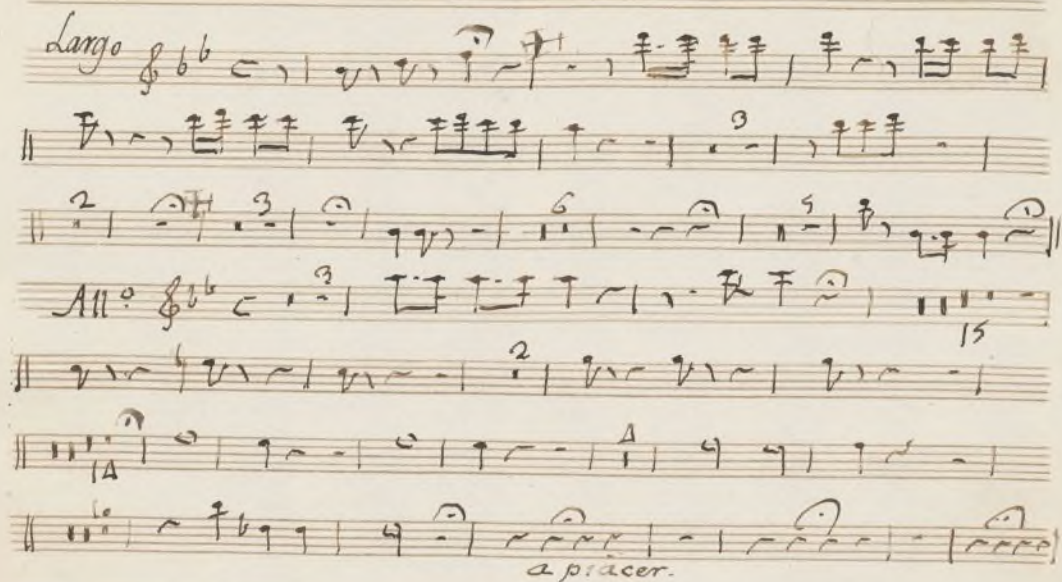 Largo
3
2 3 6 5
All:o 3 15
2
14 4
10
a piacer.